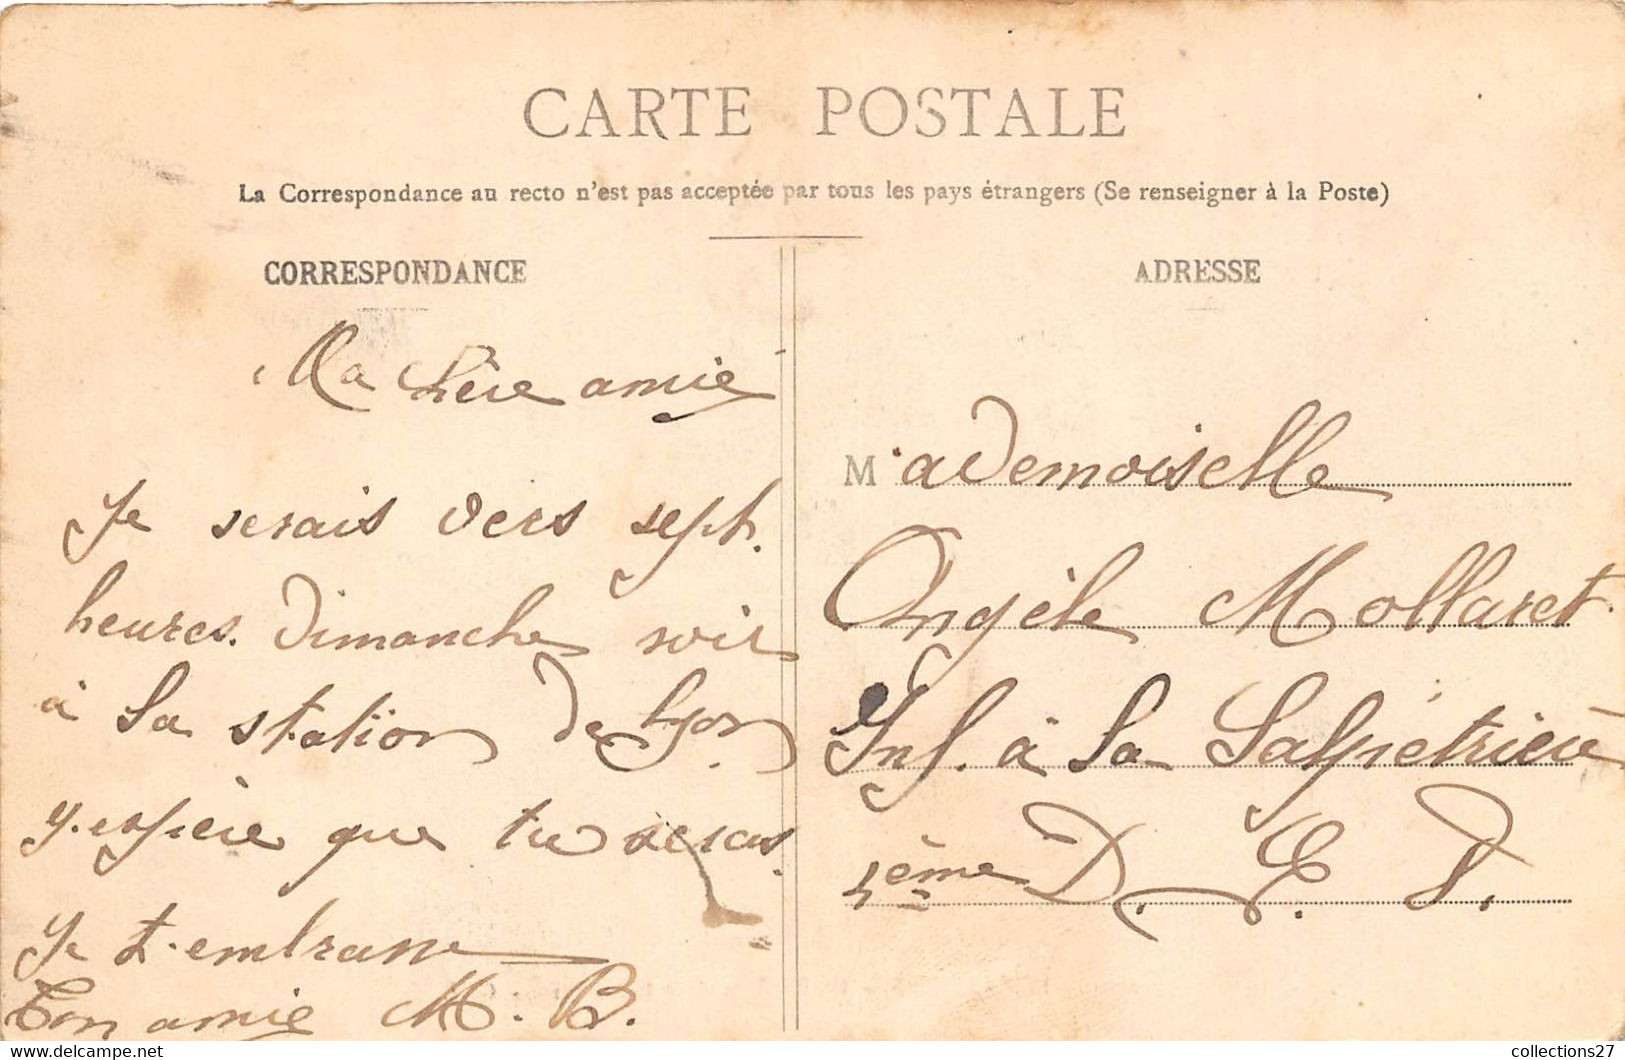 CARTE POSTALE
La Correspondance au recto n'est pas acceptée par tous les pays étrangers (Se renseigner à la Poste)
CORRESPONDANCE
Ma chère amie
Je serais vers sept.
heures. Dimanche soir
à la station de Lyon
J. espère que tu seras.
Je t. embrasse
Ton amie M. B.
ADRESSE
Mademoiselle
Angèle Mollaret
Inf. à la Salpétrière
4ème D.
collections27